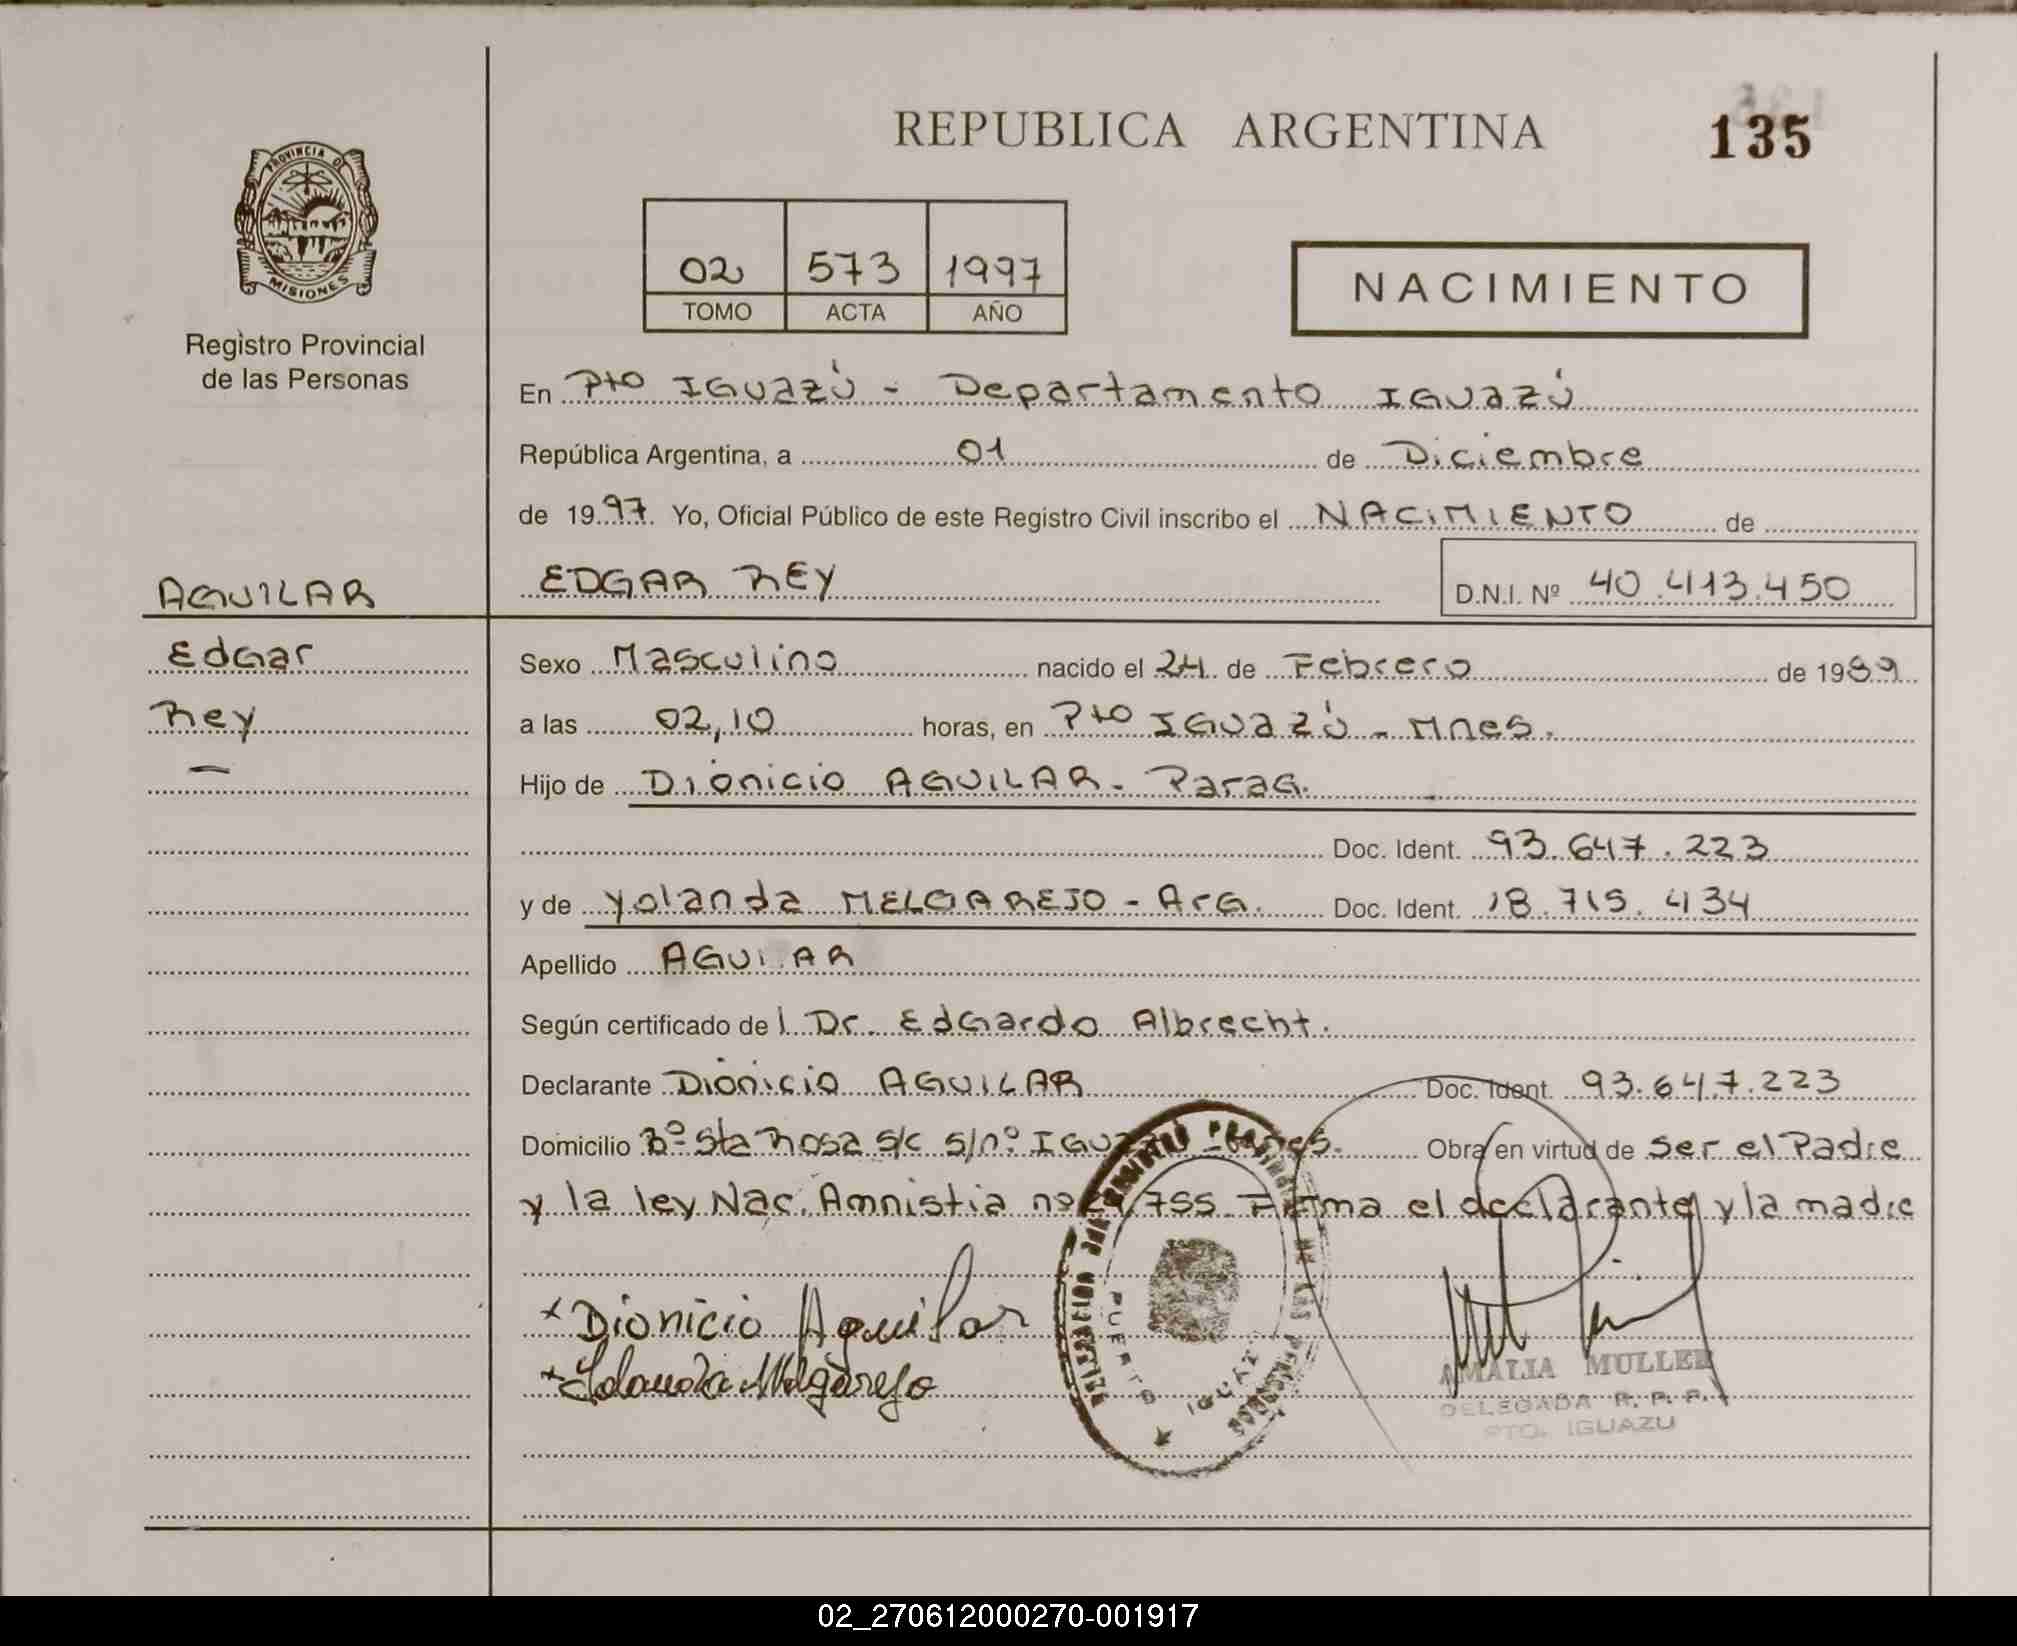 REPUBLICA ARGENTINA
135
PROVINCIA DE
MISIONES
Registro Provincial
de las Personas
02 573 1997
TOMO ACTA AÑO
NACIMIENTO
En Pto IGuazú - Departamento IGuazú
República Argentina, a 01 de Diciembre
de 1997. Yo, Oficial Público de este Registro Civil inscribo el NACIMIENTO de
AGUILAR
EDGAR REY
D.N.I. Nº 40.413.450
Edgar
Rey
Sexo Masculino nacido el 24 de Febrero de 1989
a las 02,10 horas, en Pto IGuazú - Mnes.
Hijo de Dionicio AGUILAR - Parag.
Doc. Ident. 93.647.223
y de Yolanda MELGAREJO - Arg. Doc. Ident. 18.715.434
Apellido AGUILAR
Según certificado del Dr. Edgardo Albrecht.
Declarante Dionicio AGUILAR Doc. Ident. 93.647.223
Domicilio Bº Sta Rosa s/c s/nº Obra en virtud de ser el Padre
y la ley Nac. Amnistia nº 755 Firma el declarante y la madre
x Dionicio Aguilar
x Iolanda Melgarejo
PUERTO IGUAZU
AMALIA MULLER
DELEGADA R. P. P.
PTO. IGUAZU
02_270612000270-001917